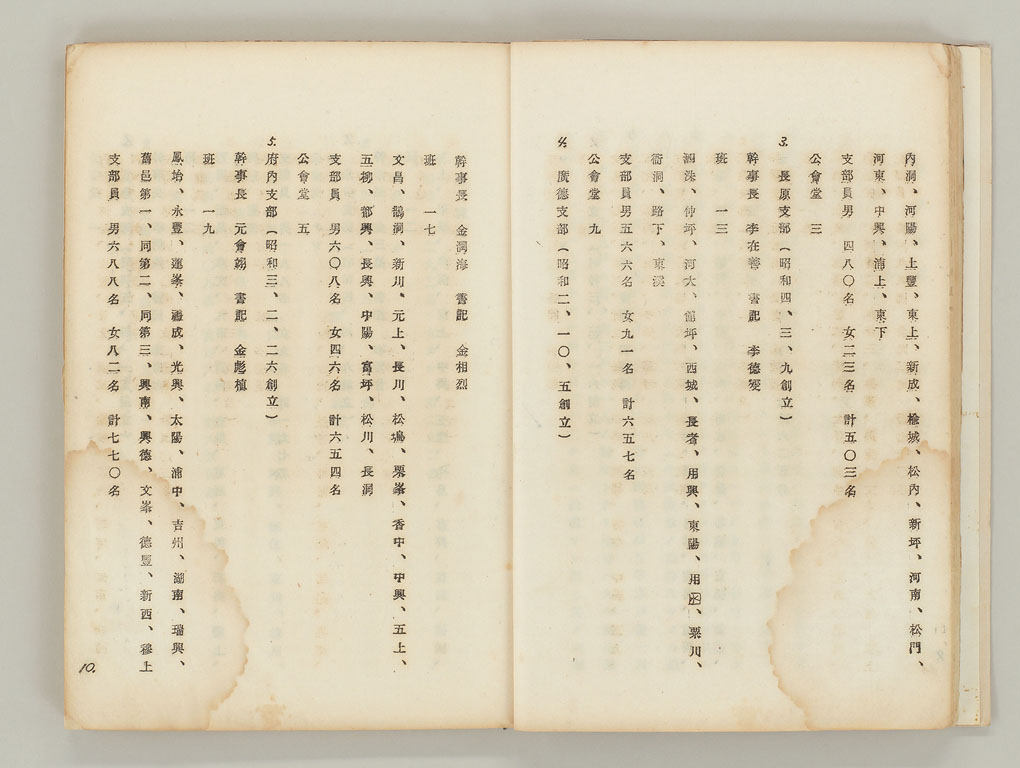 內洞、河陽、上豐、東上、新成、檢城、松內、新坪、河南、松門、
河東、中興、浦上、東下
支部員男　四八〇名　女二三名　計五〇三名
公會堂　三
3.　長原支部(昭和四、三、九創立)
幹事長　李在善　書記　李德燮
班　一三
泗洙、仲坪、河大、館坪、西城、長者、用興、東陽、用、栗川、
衙洞、路下、東溪
支部員男五六六名　女九一名　計六五七名
公會堂　九
4.　廣德支部(昭和二、一〇、五創立)
幹事長　金洞海　書記　金相烈
班　一七
文昌、鶴洞、新川、元上、長川、松塢、栗峯、香中、中興、五上、
五柳、都興、長興、中陽、富坪、松川、長洞
支部員　男六〇八名　女四六名　計六五四名
公會堂　五
5.　府內支部(昭和三、二、二六創立)
幹事長　元會翊　書記　金彪植
班　一九
鳳始、永豐、蓮峯、禮成、光興、太陽、浦中、吉州、湖南、瑞興、
舊邑第一、同第二、同第三、興南、興德、文峯、德豐、新西、穆上
支部員　男六八八名　女八二名　計七七〇名
10.